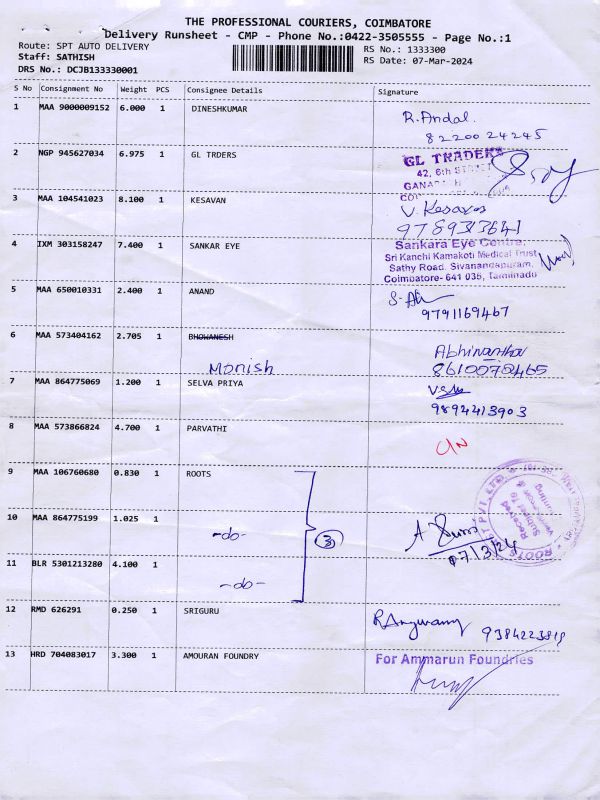 THE PROFESSIONAL COURIERS, COIMBATORE
Delivery Runsheet - CMP - Phone No.:0422-3505555 - Page No.:1
Route: SPT AUTO DELIVERY
RS No.: 1333300
Staff: SATHISH
RS Date: 07-Mar-2024
DRS No.: DCJB133330001
S No Consignment No Weight PCS Consignee Details Signature
1 MAA 9000009152 6.000 1 DINESHKUMAR
R. Andal.
8220024245
2 NGP 945627034 6.975 1 GL TRDERS
GL TRADERS
42, 6th
3 MAA 104541023 8.100 1 KESAVAN
V. Kesavan
4 IXM 303158247 7.400 1 SANKAR EYE
Sankara Eye Centre,
Sri Kanchi Kamakoti Medical Trust
Sathy Road, Sivanandapuram,
Coimbatore- 641 035, Tamilnadu
5 MAA 650010331 2.400 1 ANAND
9791169467
6 MAA 573404162 2.705 1 BHOWANESH
Monish
7 MAA 864775069 1.200 1 SELVA PRIYA
9894413903
8 MAA 573866824 4.700 1 PARVATHI
9 MAA 106760680 0.830 1 ROOTS
10 MAA 864775199 1.025 1
-do-
3
07/3/24
11 BLR 5301213280 4.100 1
-do-
12 RMD 626291 0.250 1 SRIGURU
13 HRD 704083017 3.300 1 AMOURAN FOUNDRY
For Ammarun Foundries